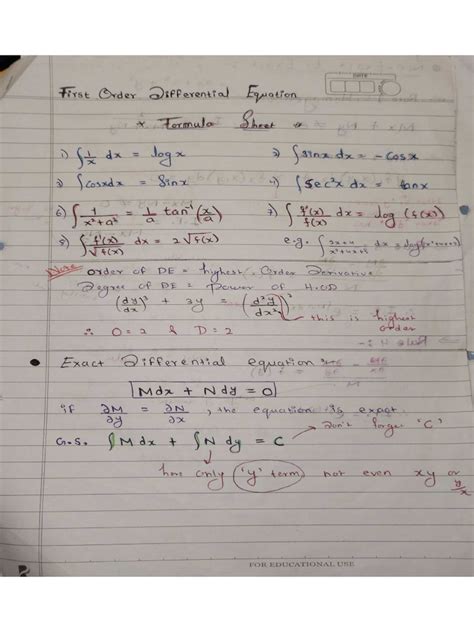 DATE
First Order Differential Equation
* Formula Sheet *
1) ∫ 1/x dx = log x    2) ∫ sinx dx = - cosx
3) ∫ cosx dx = sinx    4) ∫ sec²x dx = tanx
6) ∫ 1/(x²+a²) = 1/a tan⁻¹(x/a)    7) ∫ f'(x)/f(x) dx = log (f(x))
8) ∫ f'(x)/√f(x) dx = 2√f(x)    e.g. ∫ dx = log
Note Order of DE = highest Order Derivative
Degree of DE = Power of H.O.D
(dy/dx)³ + 3y = (d²y/dx²)²
this is highest
order
∴ O = 2 & D = 2
• Exact Differential equation
Mdx + Ndy = 0
if ∂M/∂y = ∂N/∂x , the equation is exact.
G.S. ∫ M dx + ∫ N dy = C → Don't forget 'C'
here only 'y' term not even xy or y/x
FOR EDUCATIONAL USE